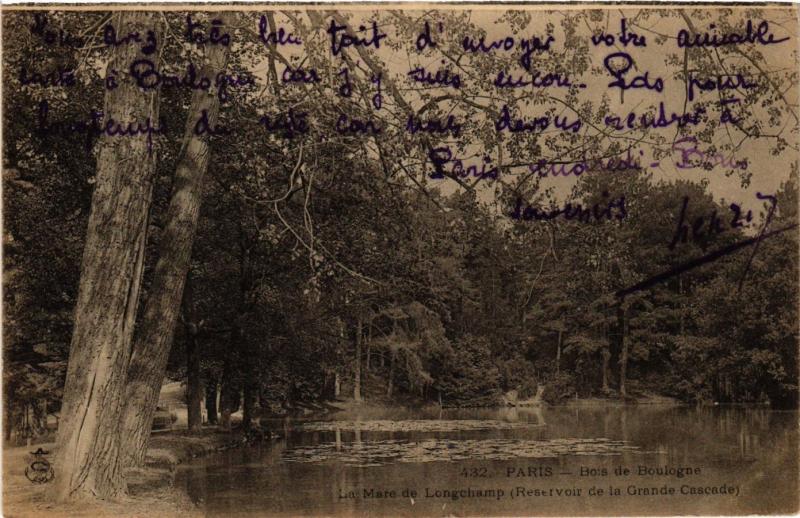 Vous avez très bien fait d'envoyer votre aimable
carte à Boulogne car j'y suis encore. Pas pour
longtemps du reste car nous devons rentrer à
Paris vendredi - Bons
souvenirs
432. PARIS — Bois de Boulogne
La Mare de Longchamp (Reservoir de la Grande Cascade)